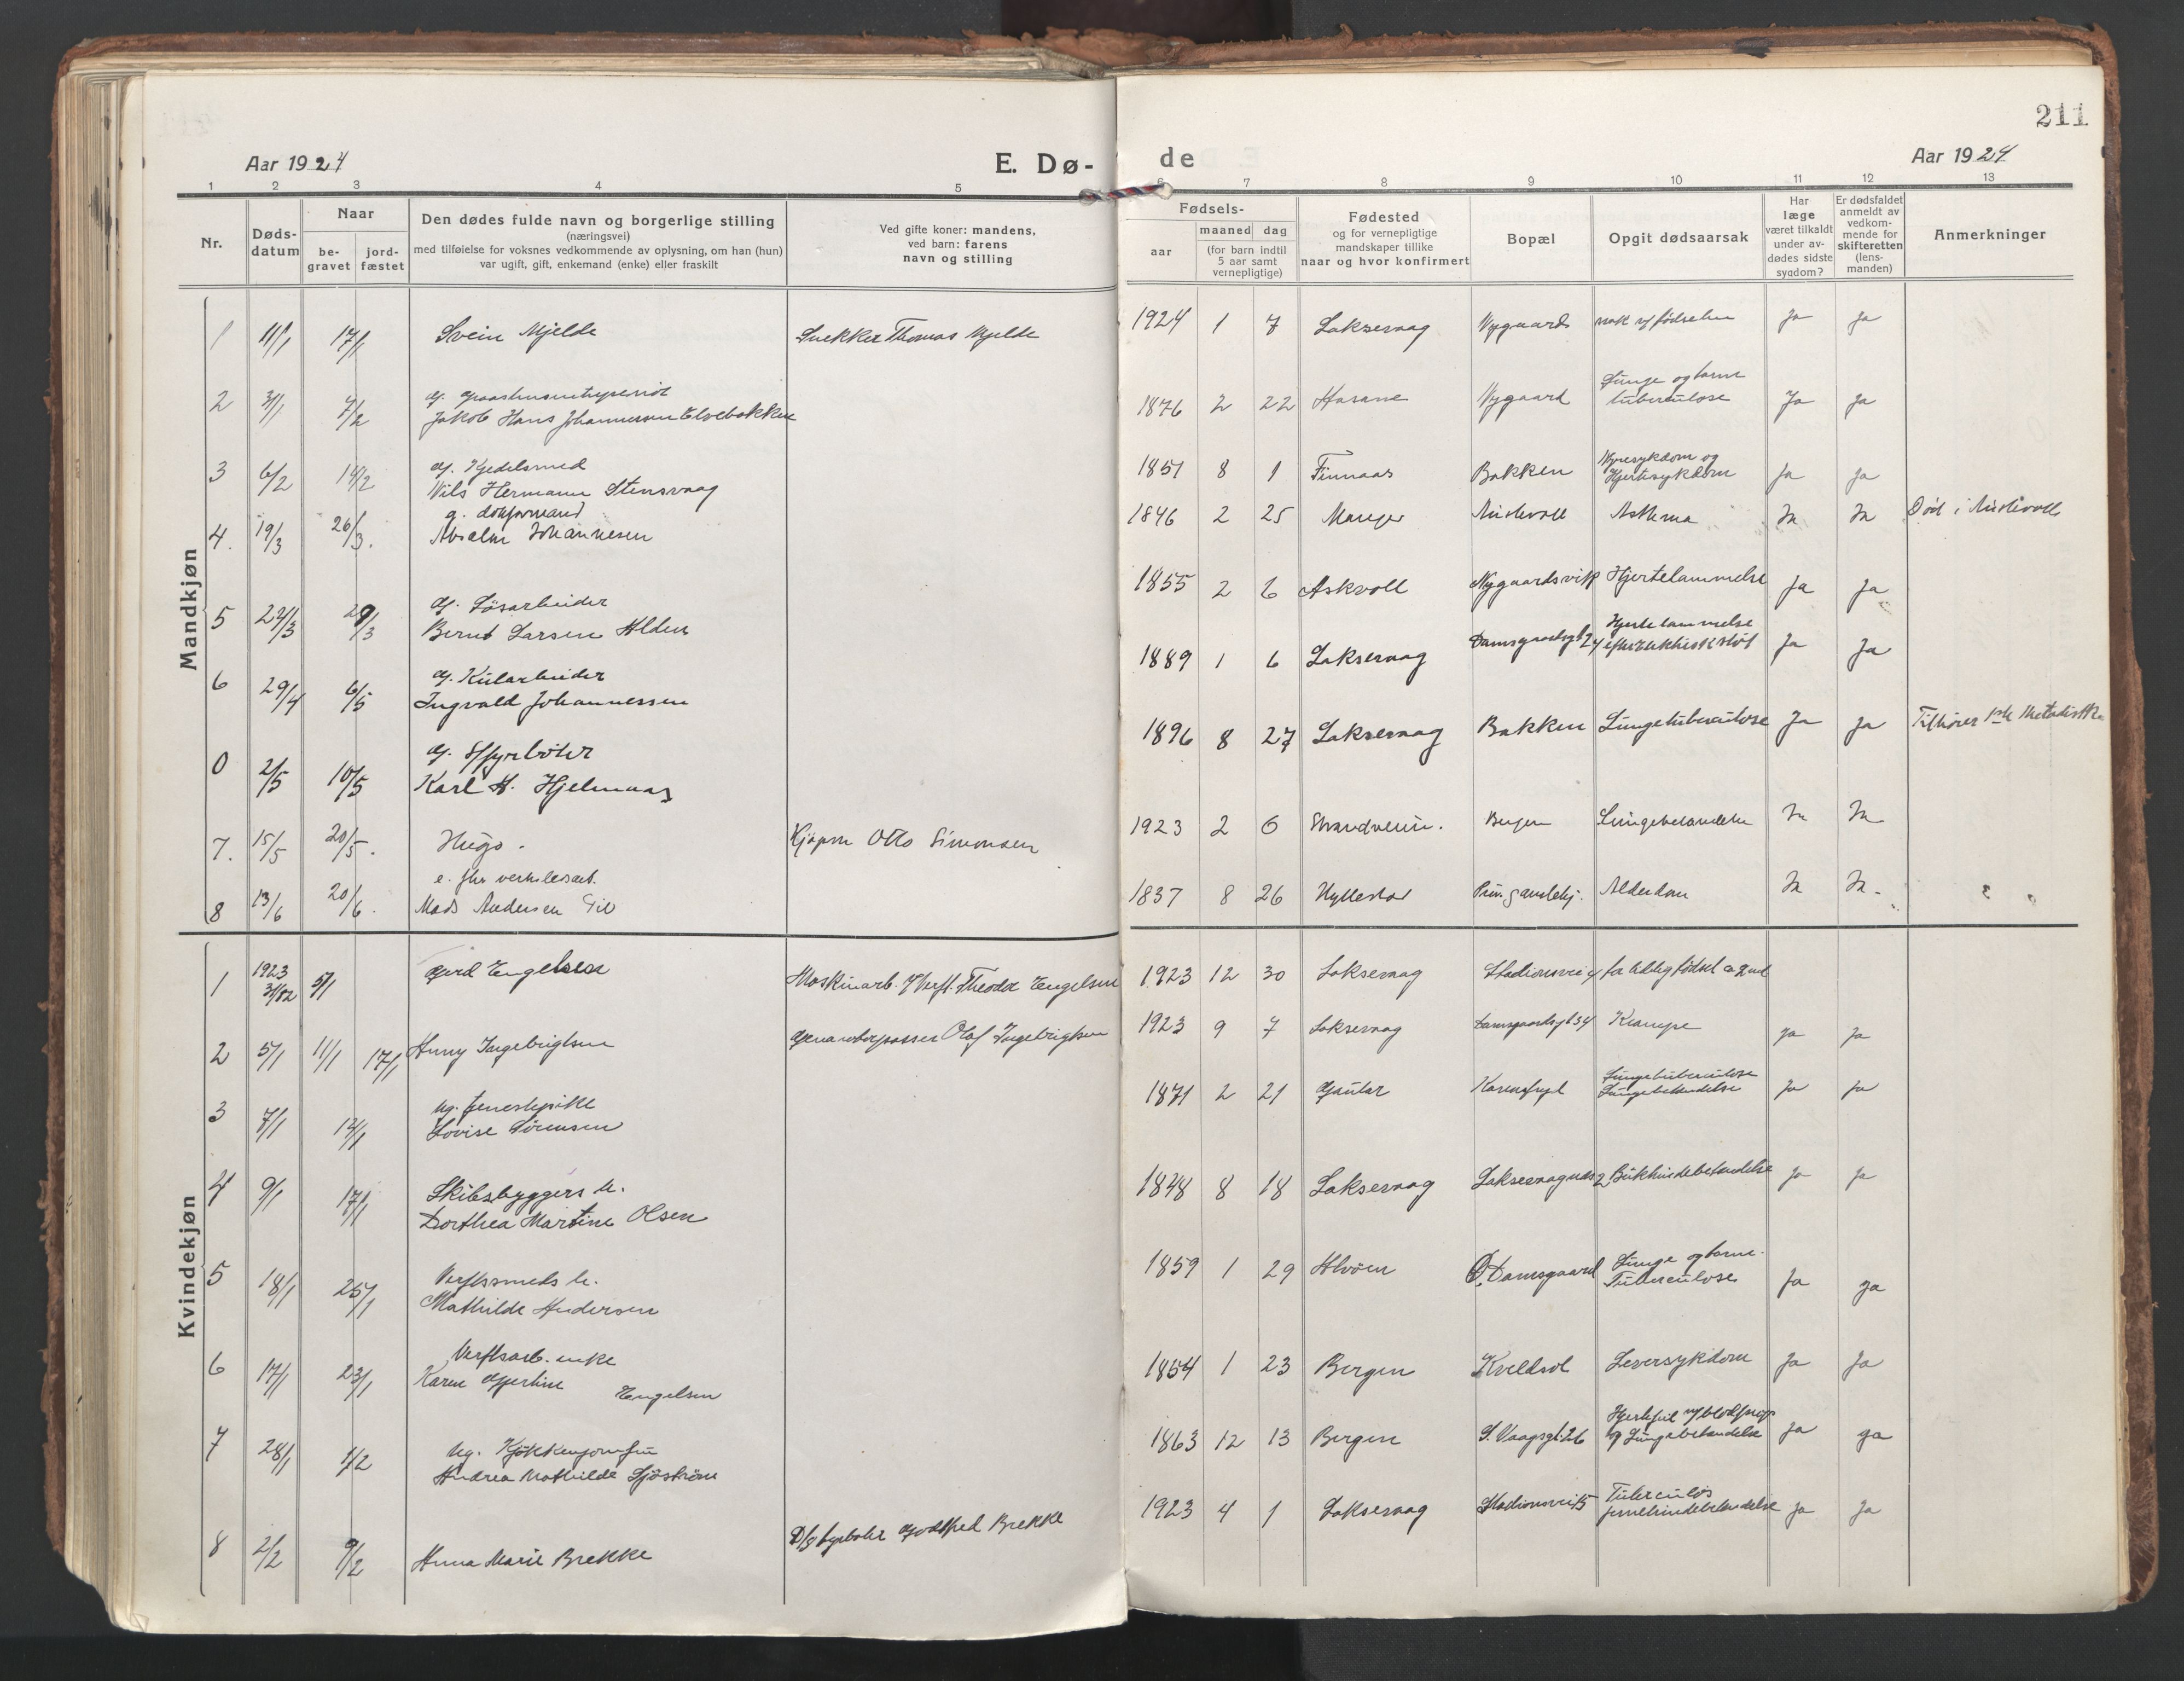 211
Aar 1924
E. Dø-
de
Aar 1924
1 2 3 4 5 6 7 8 9 10 11 12 13
Nr.
Døds-
datum
Naar
be-
gravet
jord-
fæstet
Den dødes fulde navn og borgerlige stilling
(næringsvei)
med tilføielse for voksnes vedkommende av oplysning, om han (hun)
var ugift, gift, enkemand (enke) eller fraskilt
Ved gifte koner: mandens,
ved barn: farens
navn og stilling
Fødsels-
aar
maaned dag
(for barn indtil
5 aar samt
vernepligtige)
Fødested
og for vernepligtige
mandskaper tillike
naar og hvor konfirmert
Bopæl
Opgit dødsaarsak
Har
læge
været tilkaldt
under av-
dødes sidste
sygdom?
Er dødsfaldet
anmeldt av
vedkom-
mende for
skifteretten
(lens-
manden)
Anmerkninger
Mandkjøn
1 11/1 17/1 Svein Mjelde Snekker Thomas Mjelde 1924 1 7 Laksevaag Nygaard fødselen Ja Ja
2 31/1 7/2 Jakob Hans Johannessen Elvebakken 1876 2 22 Nygaard Lunge og tarm
tuberculose Ja Ja
3 6/2 14/2 g. Kjedelsmed
Nils Hermann Stensvaag 1851 8 1 Finnaas Bakken Nyresykdom og
Hjertesykdom Ja Ja
4. 19/3 26/3. g. dokformand
Absalon Johannesen 1846 2 25 Manger Austevoll Asthma Ja Ja Død i Austevoll
5 22/3 29/3 g. Løsarbeider
Bernt Larsen Alden 1855 2 6 Askvoll Nygaardsvik Hjertelammelse Ja Ja
6 29/4 6/5 g. Kularbeider
Ingvald Johannessen 1889 1 6 Laksevaag Damsgaardsgt 24 Hjertelammelse
efter elektrisk støt Ja Ja
0 2/5 10/5 g. Fyrbøter
Karl H. Hjelmaas 1896 8 27 Laksevaag Bakken Lungetuberculose Ja Ja Tilhører Metodistk.
7. 15/5 20/5. Hugo. Otto Simonsen 1923 2 6 Strandveien. Bergen Lungebetændelse Ja Ja
8 13/6 20/6. e. fhv verkslesarb.
Mads Andersen 1837 8 26 Hyllestad Alderdom Ja Ja.
Kvindekjøn
1 1923
31/12 5/1 Gerd Engelsen Maskinarb. v/ Verft. Theodor Engelsen 1923 12 30 Laksevaag Stadionsvei 4 for tidlig fødsel
2 5/1 11/1 17/1 Anny Ingebrigtsen Olaf Ingebrigtsen 1923 9 7 Laksevaag Damsgaardsgt 34 Krampe Ja Ja
3 7/1 12/1 ug. tjenestepike
Lovise Sørensen 1871 2 21 Gaular Lungetuberculose
Lungebetændelse Ja Ja
4 9/1 17/1 Skibsbyggers h.
Dorthea Martine Olsen 1848 8 18 Laksevaag Laksevaagnes 2 Bukhindebetændelse Ja Ja
5 18/1 25/1 Verftssmeds h.
Mathilde Andersen 1859 1 29 Alvøen Ø. Damsgaard Lunge og tarm.
Tuberculose Ja Ja
6 17/1 23/1 Verftsarb. enke
Karen Gjertine Engelsen 1854 1 23 Bergen Kveldsol Leversykdom Ja Ja
7 28/1 1/2 ug. Kjøkkenjomfru
Andrea Mathilde Sjöström 1863 12 13 Bergen S. Vaagsgt. 26 Hjertefeil m/ blodprop
og Lungebetændelse Ja Ja
8 2/2 9/2 Anna Marie Brekke D/s fyrbøter Godtfred Brekke 1923 4 1 Laksevaag Stadionsvei 15 Tuberculøs
hjernehindebetændelse Ja Ja